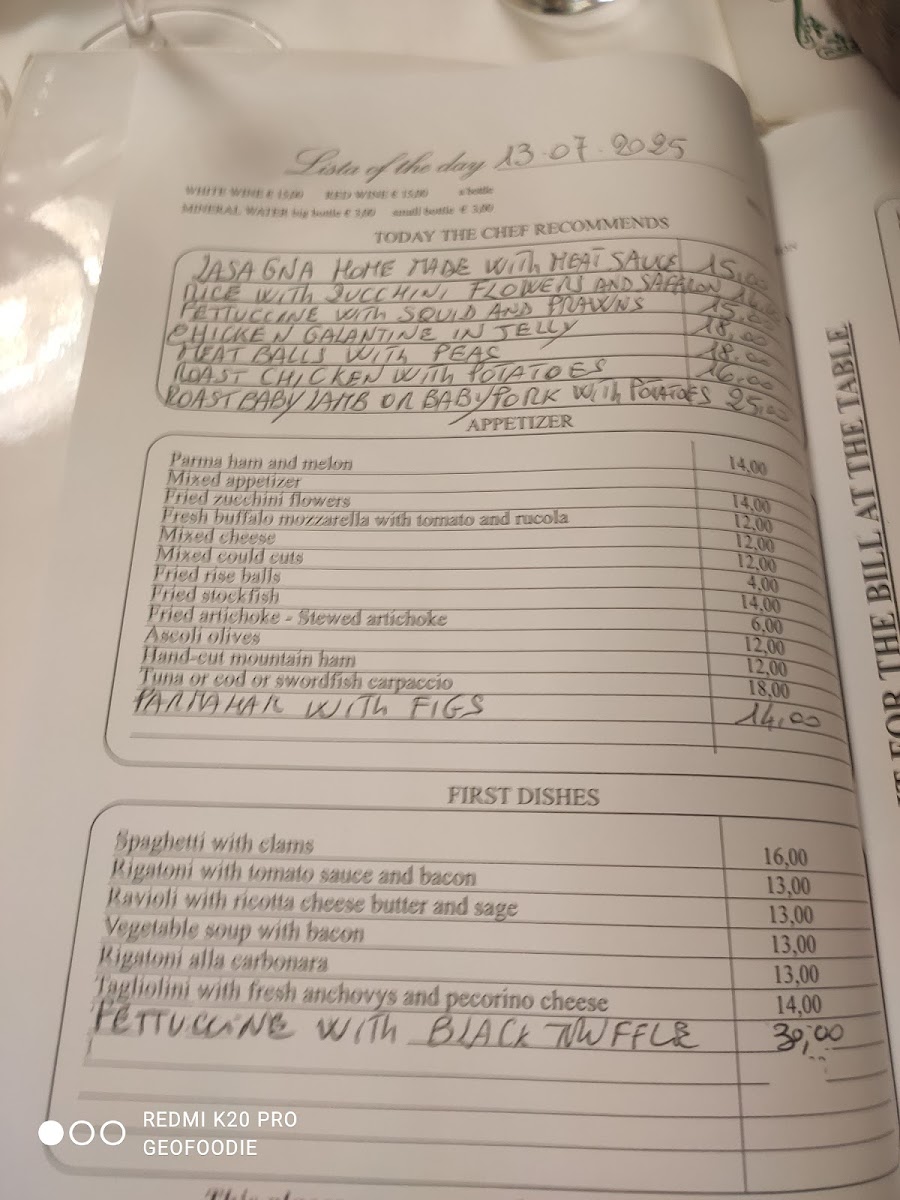 Lista of the day 13.07.2025
WHITE WINE € 15,00 RED WINE € 15,00
MINERAL WATER big bottle € 3,00 small bottle € 3,00
TODAY THE CHEF RECOMMENDS
LASAGNA HOME MADE WITH MEAT SAUCE 15,00
RICE WITH ZUCCHINI FLOWERS AND SAFFRON
FETTUCCINE WITH SQUID AND PRAWNS 15,00
CHICKEN GALANTINE IN JELLY 18,00
MEAT BALLS WITH PEAS 18,00
ROAST CHICKEN WITH POTATOES 16,00
ROAST BABY LAMB OR BABY PORK WITH POTATOES 25,00
APPETIZER
Parma ham and melon 14,00
Mixed appetizer
Fried zucchini flowers 14,00
Fresh buffalo mozzarella with tomato and rucola 12,00
Mixed cheese 12,00
Mixed could cuts 12,00
Fried rise balls 4,00
Fried stockfish 14,00
Fried artichoke - Stewed artichoke 6,00
Ascoli olives 12,00
Hand-cut mountain ham 12,00
Tuna or cod or swordfish carpaccio 18,00
PARMA HAM WITH FIGS 14,00
FIRST DISHES
Spaghetti with clams 16,00
Rigatoni with tomato sauce and bacon 13,00
Ravioli with ricotta cheese butter and sage 13,00
Vegetable soup with bacon 13,00
Rigatoni alla carbonara 13,00
Tagliolini with fresh anchovys and pecorino cheese 14,00
FETTUCCINE WITH BLACK TRUFFLE 30,00
FOR THE BILL AT THE TABLE
REDMI K20 PRO
GEOFOODIE